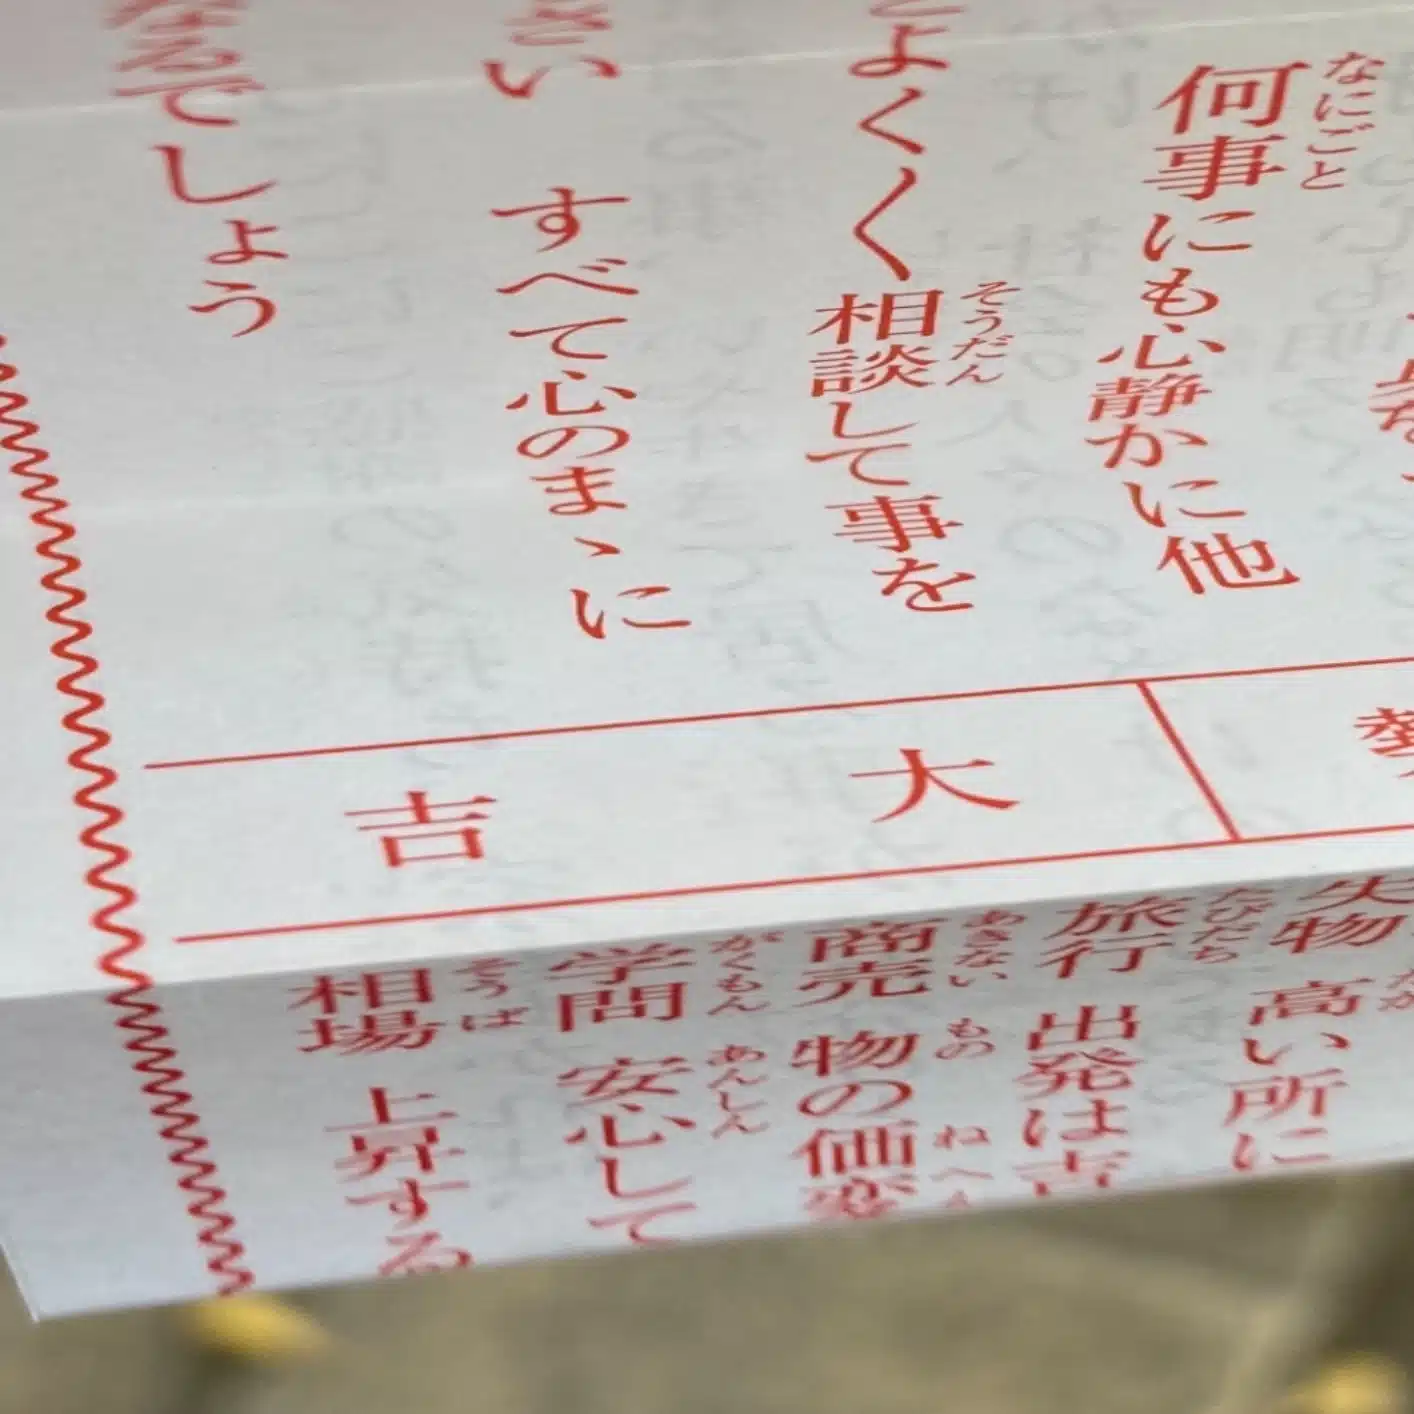 何事にも心静かに他
よくよく相談して事を
さい すべて心のまゝに
なるでしょう
大吉
失物 高い所に
旅行 出発は吉
商売 物の価変
学問 安心して
相場 上昇する